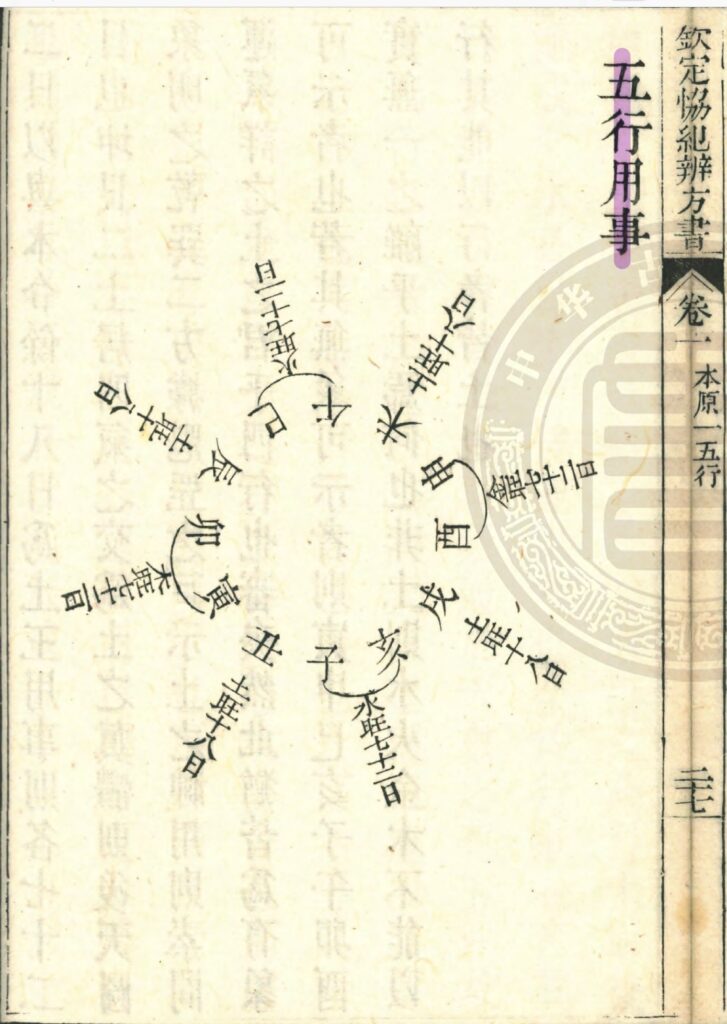 欽定恊紀辨方書
卷一
本原一五行
二七
五行用事
午
未
土旺十八日
申
酉
金旺七十二日
戌
土旺十八日
亥
子
水旺七十二日
丑
土旺十八日
寅
卯
木旺七十二日
辰
土旺十八日
巳
火旺七十二日
中华古